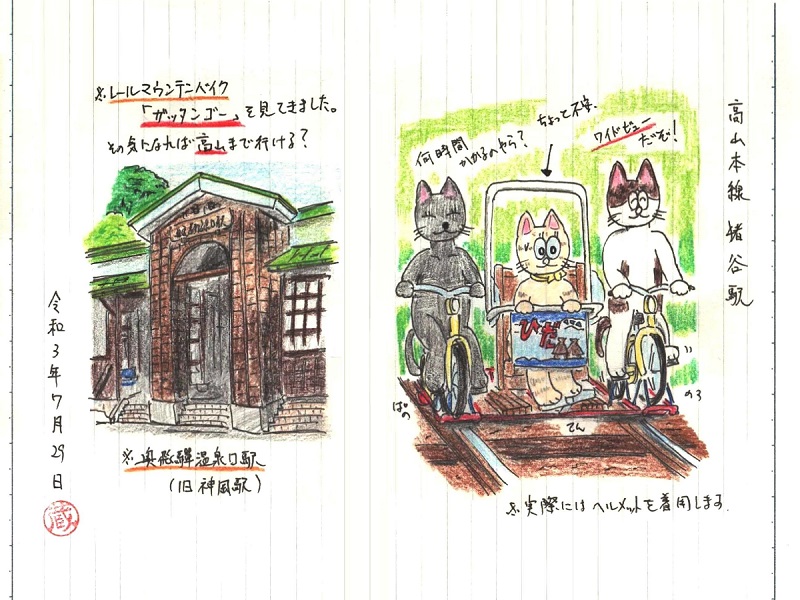 高山本線 猪谷駅
※レールマウンテンバイク
「ガッタンゴー」を見てきました。
その気になれば高山まで行ける?
※奥飛騨温泉口駅
(旧 神岡駅)
令和3年7月29日
蔵
何時間
かかるのやら?
ちょっと不安。
ワイドビュー
だぞ!
ひだ
ぱの
てん
のろ
※実際にはヘルメットを着用します。